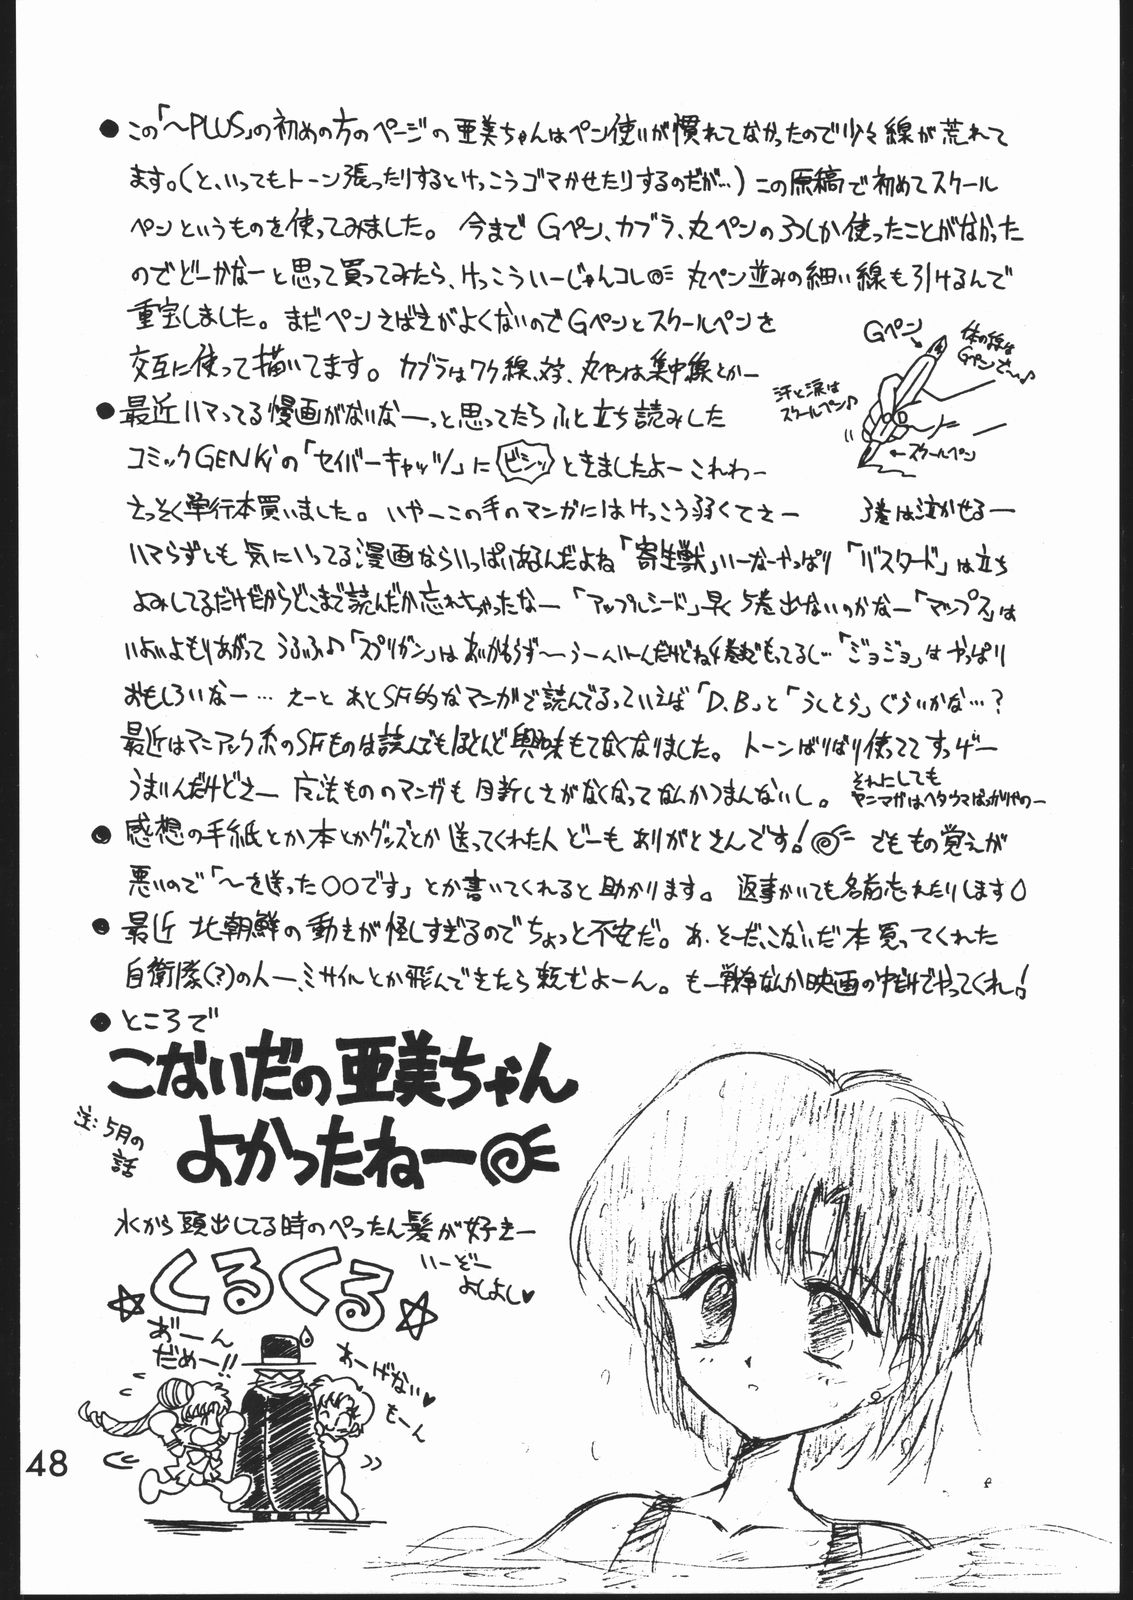 ●この「～PLUS」の初めの方のページの亜美ちゃんはペン使いが慣れてなかったので少々線が荒れて
ます。(と、いってもトーン張ったりするとけっこうゴマかせたりするのだが…)この原稿で初めてスクール
ペンというものを使ってみました。今までGペン、カブラ、丸ペンの3つしか使ったことがなかった
のでどーかなーと思って買ってみたら、けっこういーじゃんコレ 丸ペン並みの細い線も引けるんで
重宝しました。まだペンさばきがよくないのでGペンとスクールペンを
交互に使って描いてます。カブラはワク線、文字、丸ペンは集中線とかー
Gペン
体の線は
Gペンでー♪
汗と涙は
スクールペン♪
←スクールペン
●最近ハマってる漫画がないなーっと思ってたらふと立ち読みした
コミックGENKiの「セイバーキャッツ」にビシッときましたよーこれわー
さっそく単行本買いました。いやーこの手のマンガにはけっこう弱くてさー 3巻は泣かせるー
ハマらずとも気にいってる漫画ならいっぱいあるんだよね「寄生獣」いーなーやっぱり「バスタード」は立ち
よみしてるだけだからどこまで読んだか忘れちゃったなー「アップルシード」早く5巻出ないのかなー「マップス」は
いよいよもりあがって うふふ♪「スプリガン」はあいかわらず～うーんいーんだけどね 巻までもってるし…「ジョジョ」はやっぱり
おもしろいなー… えーと あとSF的なマンガで読んでるっていえば「D.B」と「うしとら」ぐらいかな…?
最近はマニアック系のSFものは読んでもほとんど興味もてなくなりました。トーンばりばり使っててすっげー
うまいんだけどさー 魔法もののマンガも目新しさがなくなってなんかつまんないし。
それにしても
ヤンマガはヘタウマばっかりやのー
●感想の手紙とか本とかグッズとか送ってくれた人どーもありがとさんです! でももの覚えが
悪いので「～を送った○○です」とか書いてくれると助かります。返事かいても名前忘れたりします
●最近北朝鮮の動きが怪しすぎるのでちょっと不安だ。あ、そーだ、こないだ本買ってくれた
自衛隊(?)の人ー、ミサイルとか飛んできたら頼むよーん。もー戦争なんか映画の中だけでやってくれ!
●ところで
こないだの亜美ちゃん
よかったねー
注:5月の
話
水から頭出してる時のぺったん髪が好きー
いーぞー
よしよし♥
☆くるくる☆
あ゛ーん
だめー!!
あーげない♥
もーん
48